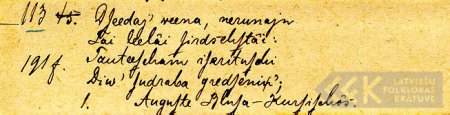 113 45. Dseedaj' weena, nerunajn
Tai leelai sirdsehstâi:
191f. Tauteescham isarituschi
Diw' sudraba gredsenix';
1. Auguste Blusa - Kursischôs.
LATVIEŠU
FOLKLORAS
KRĀTUVE